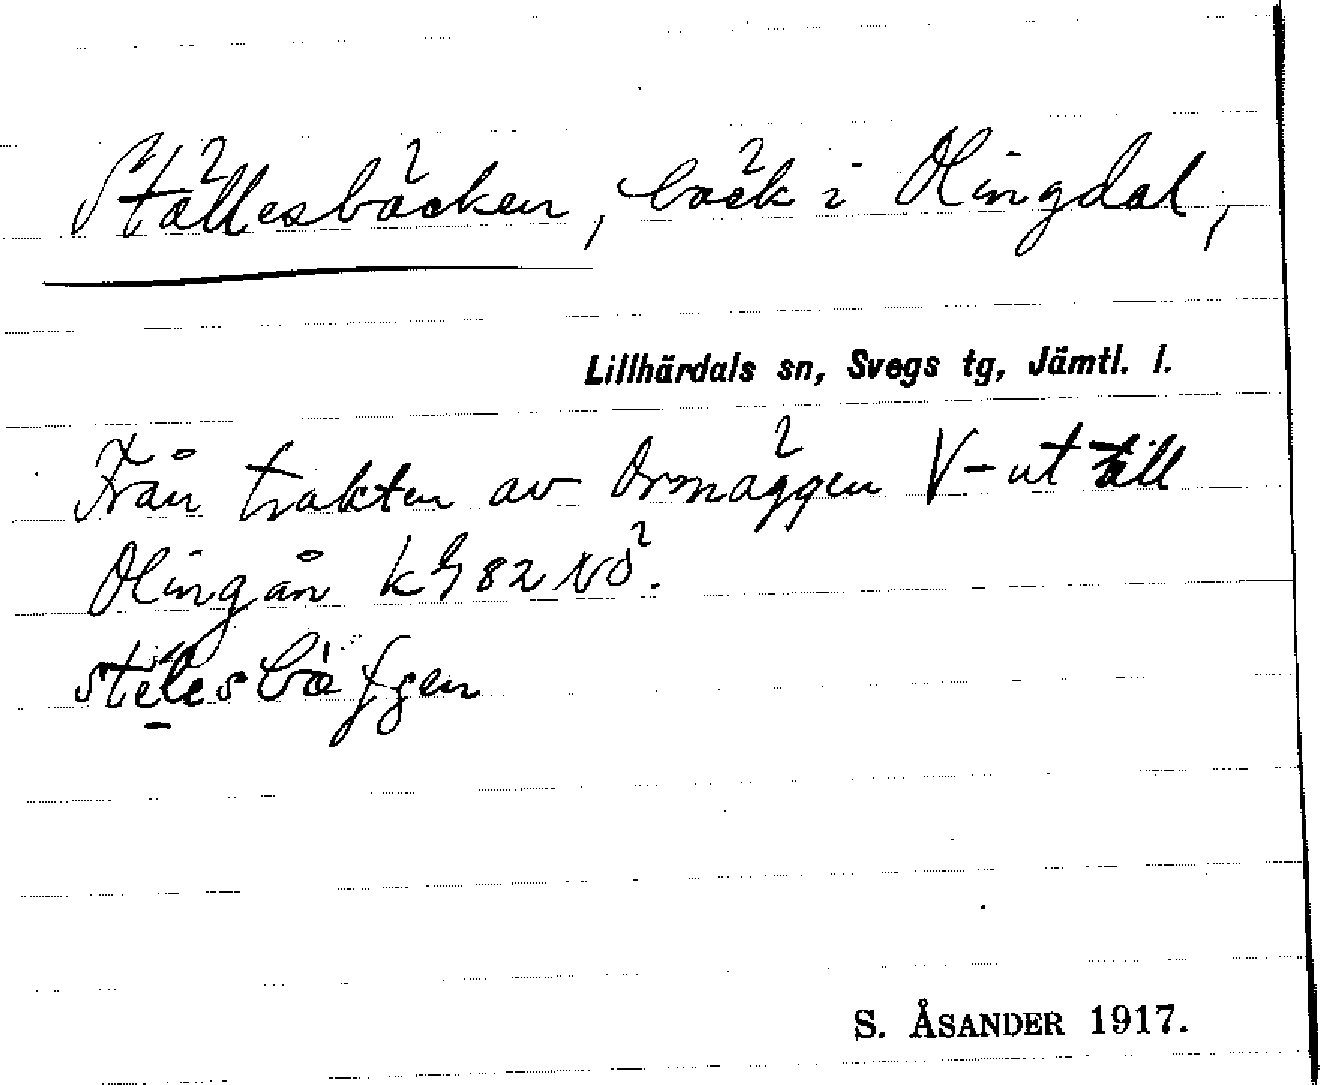 Ställesbäcken, bäck i Olingdal,
Lillhärdals sn, Svegs tg, Jämtl. l.
Från trakten av Ormäggen V-ut till
Olingån k 82 NÖ.
S. ÅSANDER 1917.